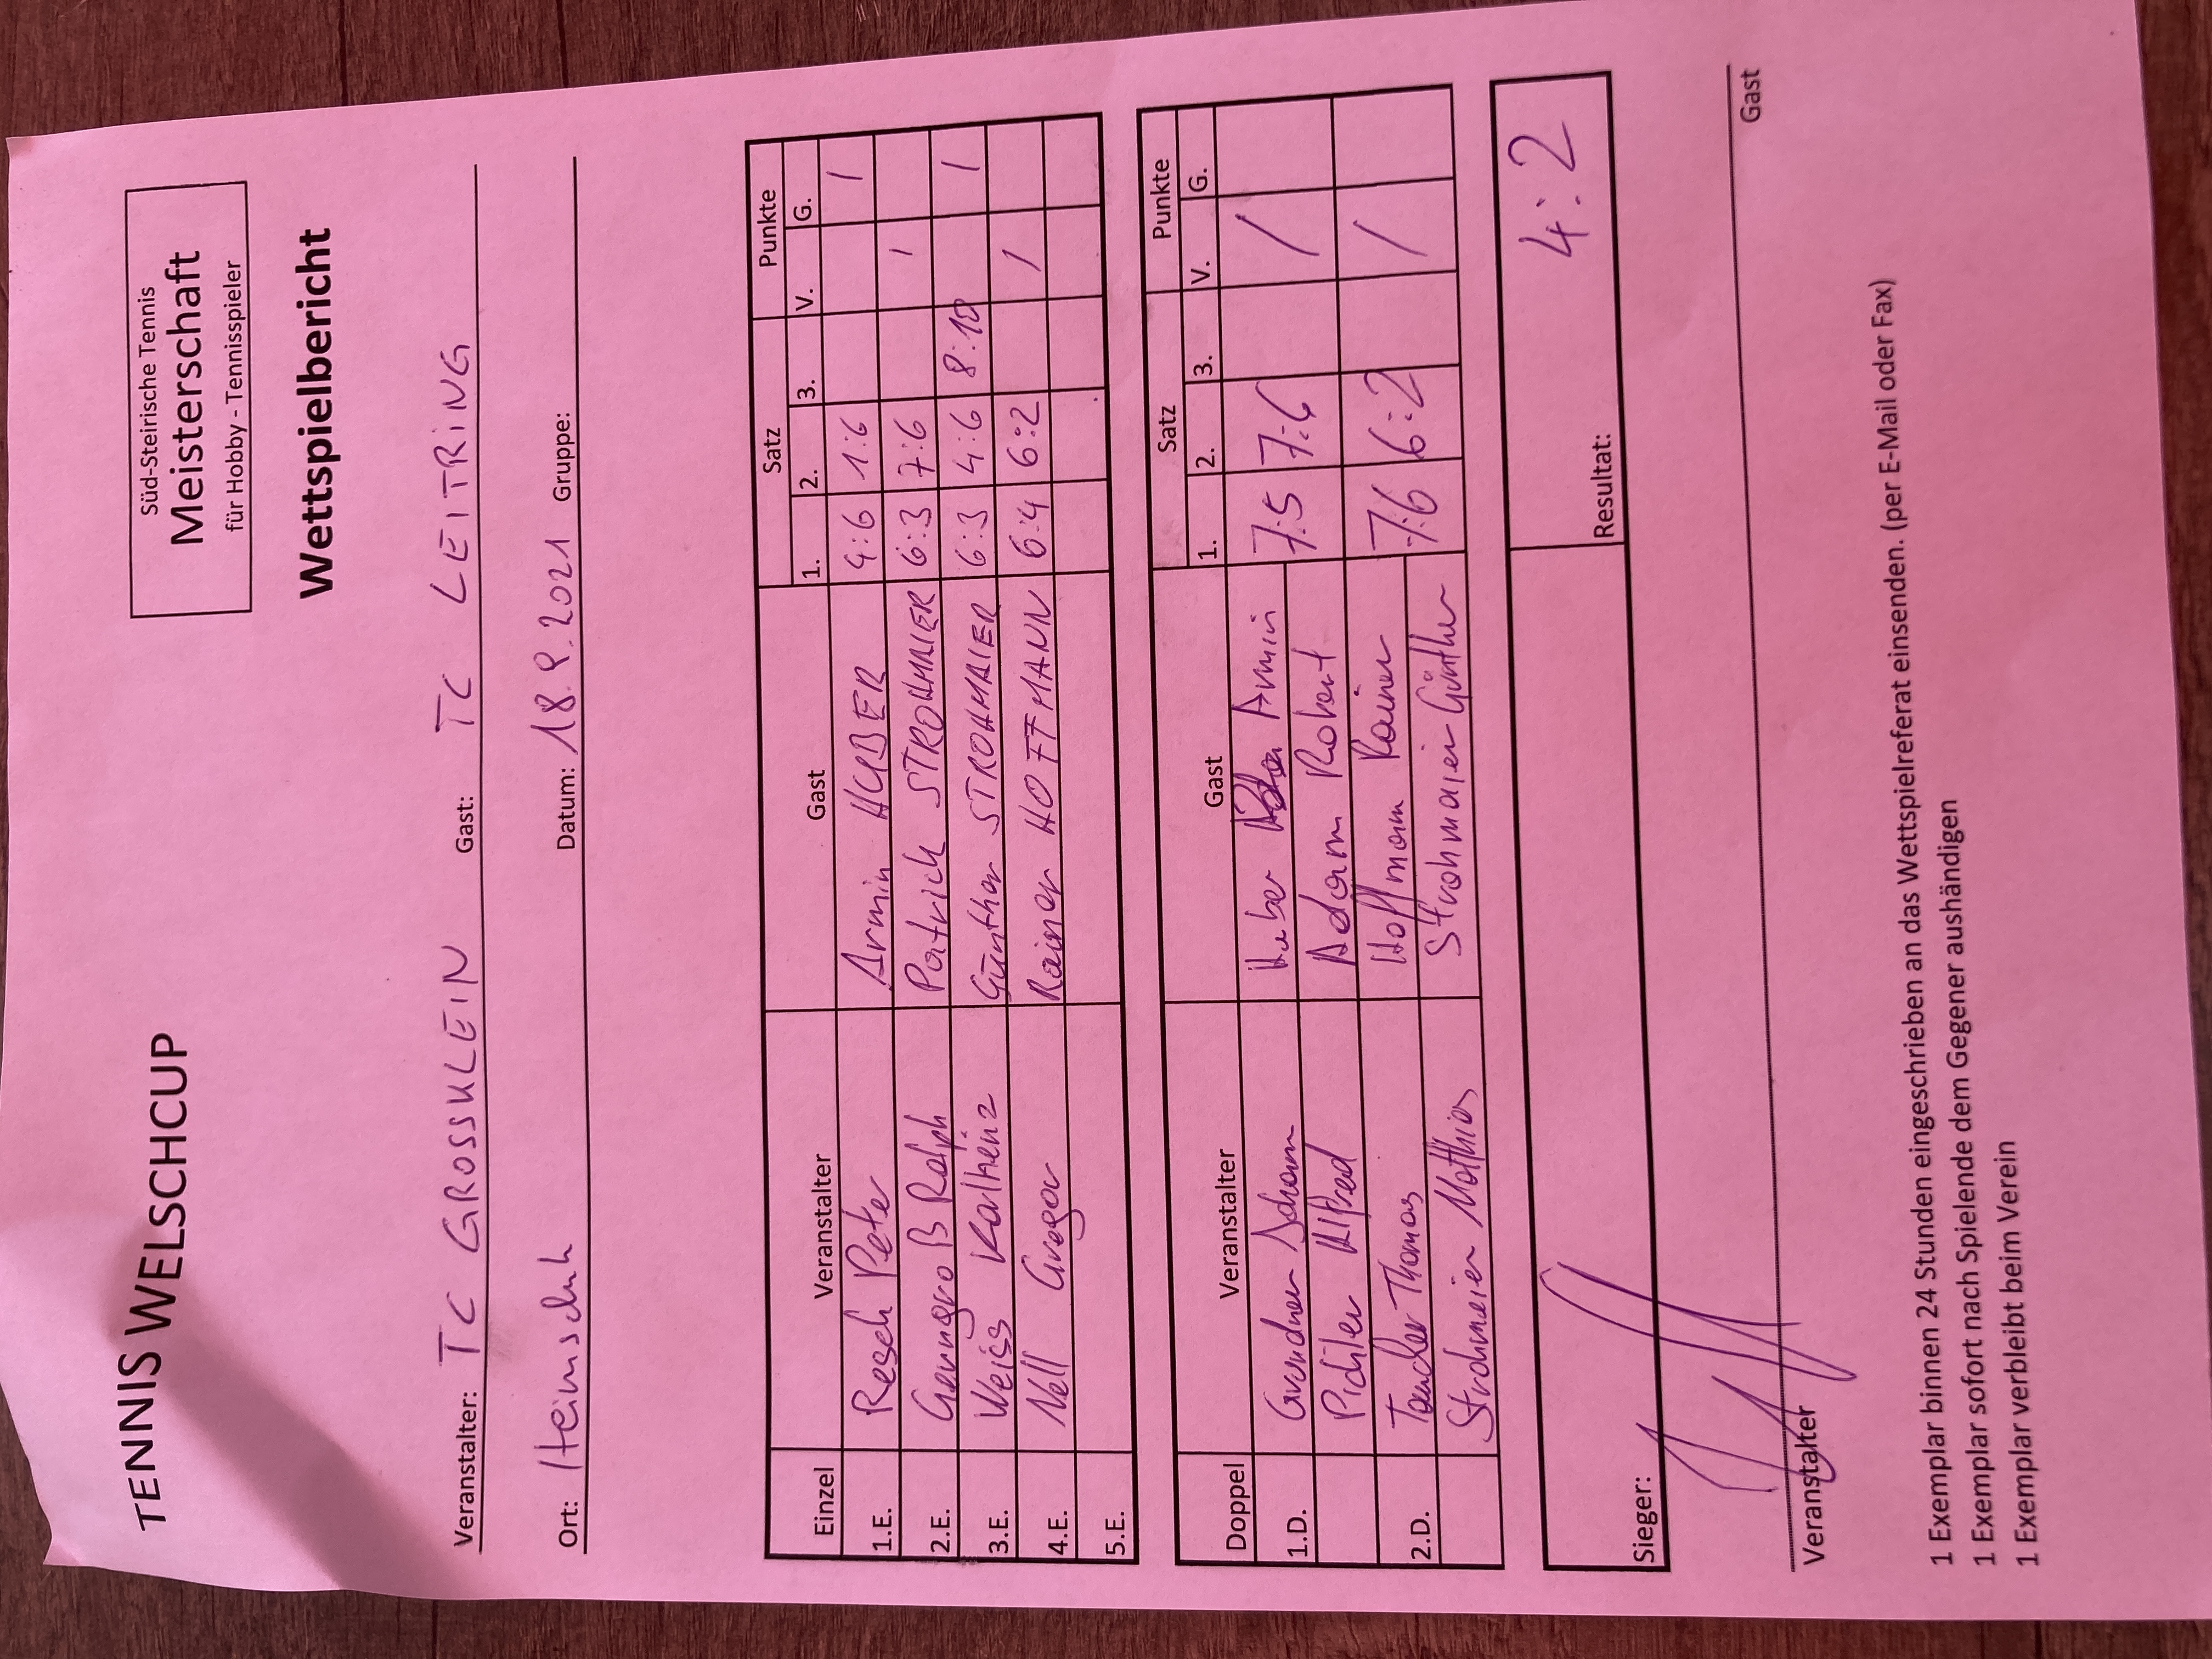 TENNIS WELSCHCUP
Süd-Steirische Tennis
Meisterschaft
für Hobby - Tennisspieler
Wettspielbericht
Veranstalter: TC GROSSKLEIN Gast: TC LEITRING
Ort: Heimschuh Datum: 18.9.2021 Gruppe:
Einzel Veranstalter Gast Satz Punkte
1. 2. 3. V. G.
1.E. Resch Peter Armin HUBER 4:6 1:6 1
2.E. Ralph Patrick STROHMAIER 6:3 7:6 1
3.E. Weiss Karlheinz Günther STROHMAIER 6:3 4:6 8:10 1
4.E. Nell Gregor Rainer HOFFMANN 6:4 6:2 1
5.E.
Doppel Veranstalter Gast Satz Punkte
1. 2. 3. V. G.
1.D. Johann Huber Armin 7:5 7:6 /
Pichler Alfred Adam Robert
2.D. Taucher Thomas Hoffmann Rainer 7:6 6:2 /
Strohmeier Matthias Strohmaier Günther
Sieger: Resultat: 4:2
Veranstalter Gast
1 Exemplar binnen 24 Stunden eingeschrieben an das Wettspielreferat einsenden. (per E-Mail oder Fax)
1 Exemplar sofort nach Spielende dem Gegener aushändigen
1 Exemplar verbleibt beim Verein